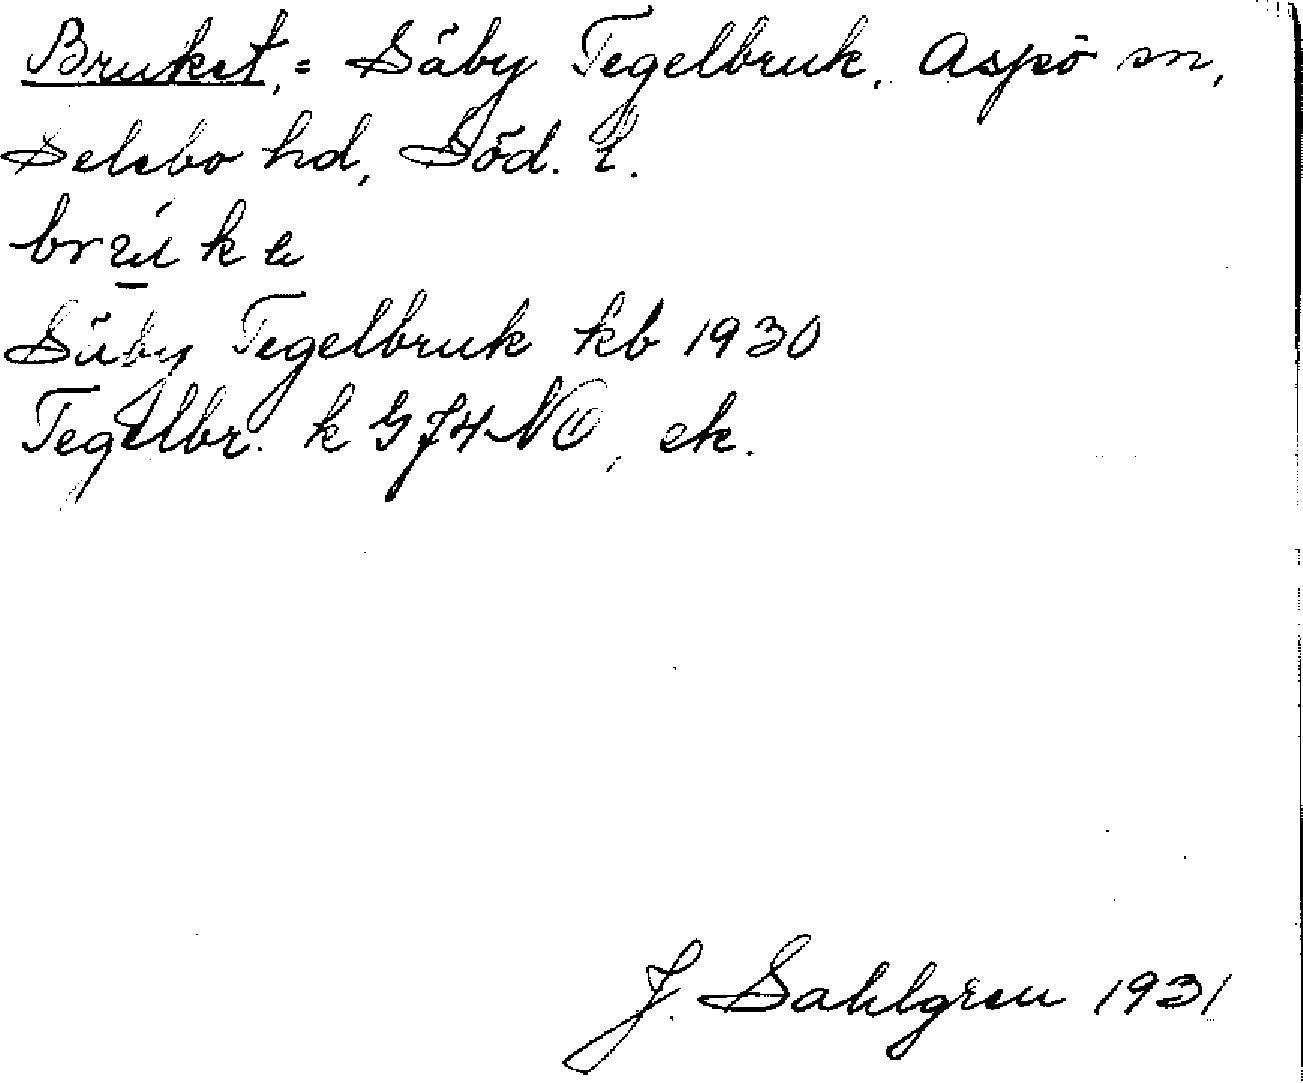 Bruket, = Säby Tegelbruk, Aspö sn,
Selebo hd, Söd. l.
Säby Tegelbruk kb 1930
Tegelbr. k GJ4 NO, ek.
J. Sahlgren 1931